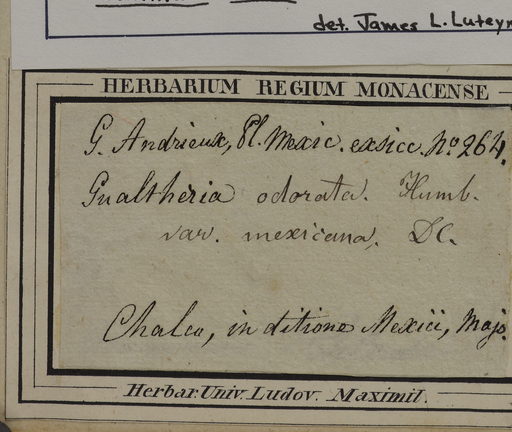 det. James L. Luteyn
HERBARIUM REGIUM MONACENSE
G. Andrieux, Pl. Mexic. exsicc. No. 264.
Gualtheria odorata. Humb.
var. mexicana. DC.
Chalco, in ditione Mexici, Majo.
Herbar. Univ. Ludov. Maximil.